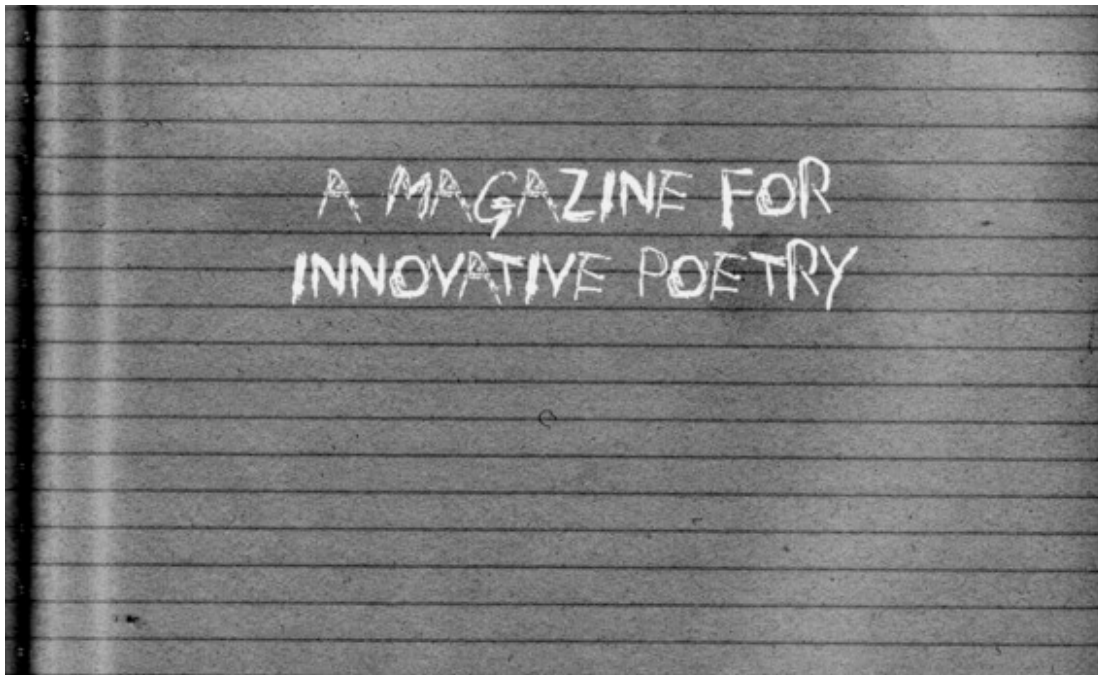 A MAGAZINE FOR
INNOVATIVE POETRY